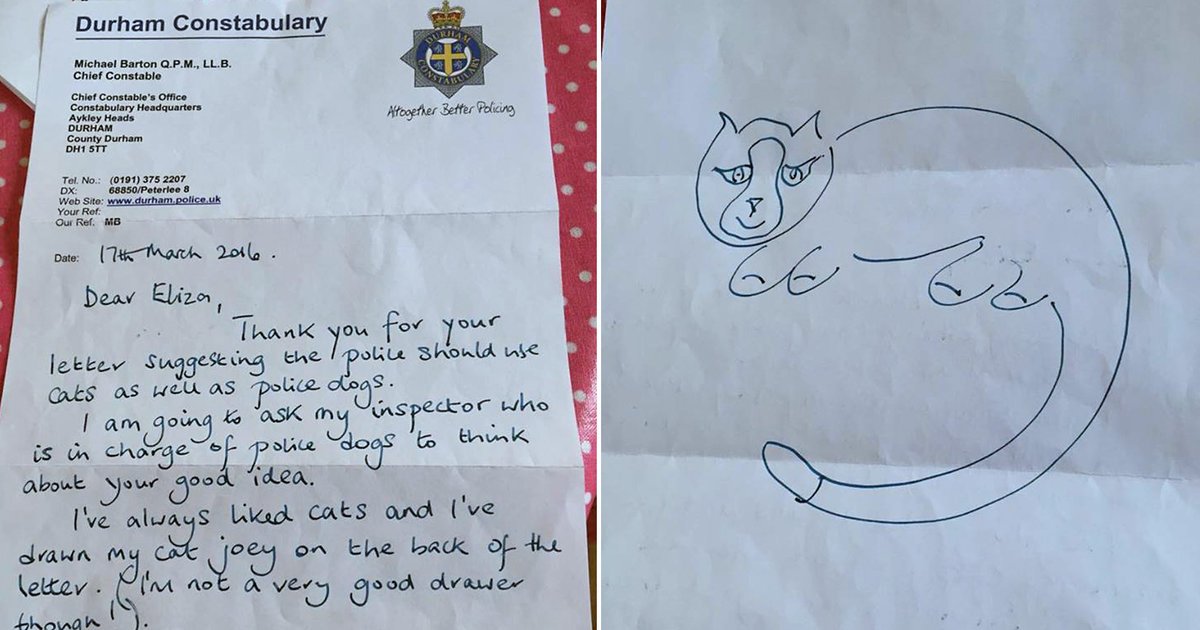 Durham Constabulary
Michael Barton Q.P.M., LL.B.
Chief Constable
Chief Constable's Office
Constabulary Headquarters
Aykley Heads
DURHAM
County Durham
DH1 5TT
DURHAM
CONSTABULARY
Altogether Better Policing
Tel. No.: (0191) 375 2207
DX: 68850/Peterlee 8
Web Site: www.durham.police.uk
Your Ref:
Our Ref. MB
Date: 17th March 2016.
Dear Eliza,
Thank you for your
letter suggesting the police should use
cats as well as police dogs.
I am going to ask my inspector who
is in charge of police dogs to think
about your good idea.
I've always liked cats and I've
drawn my cat joey on the back of the
letter. (I'm not a very good drawer
though!).